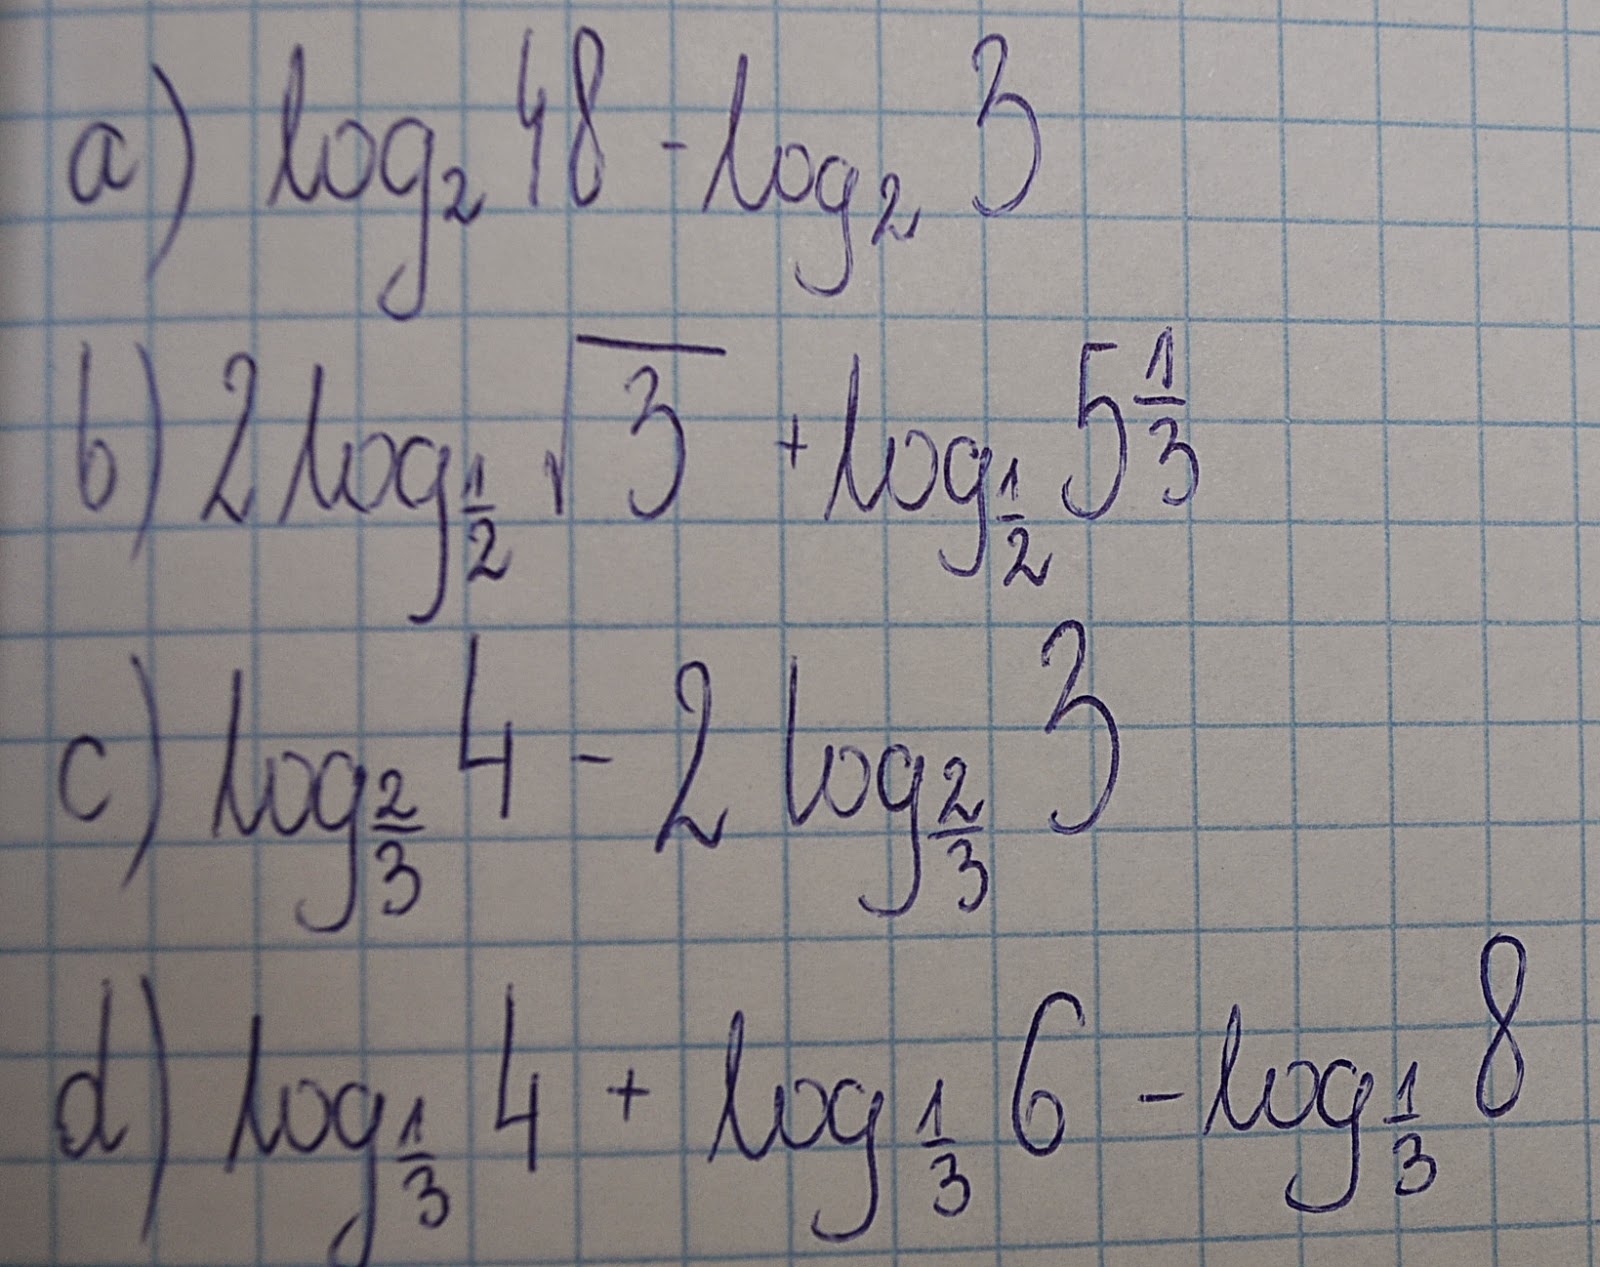 a) log₂ 48 - log₂ 3
b) 2 log_{1/2} √3 + log_{1/2} 5 1/3
c) log_{2/3} 4 - 2 log_{2/3} 3
d) log_{1/3} 4 + log_{1/3} 6 - log_{1/3} 8